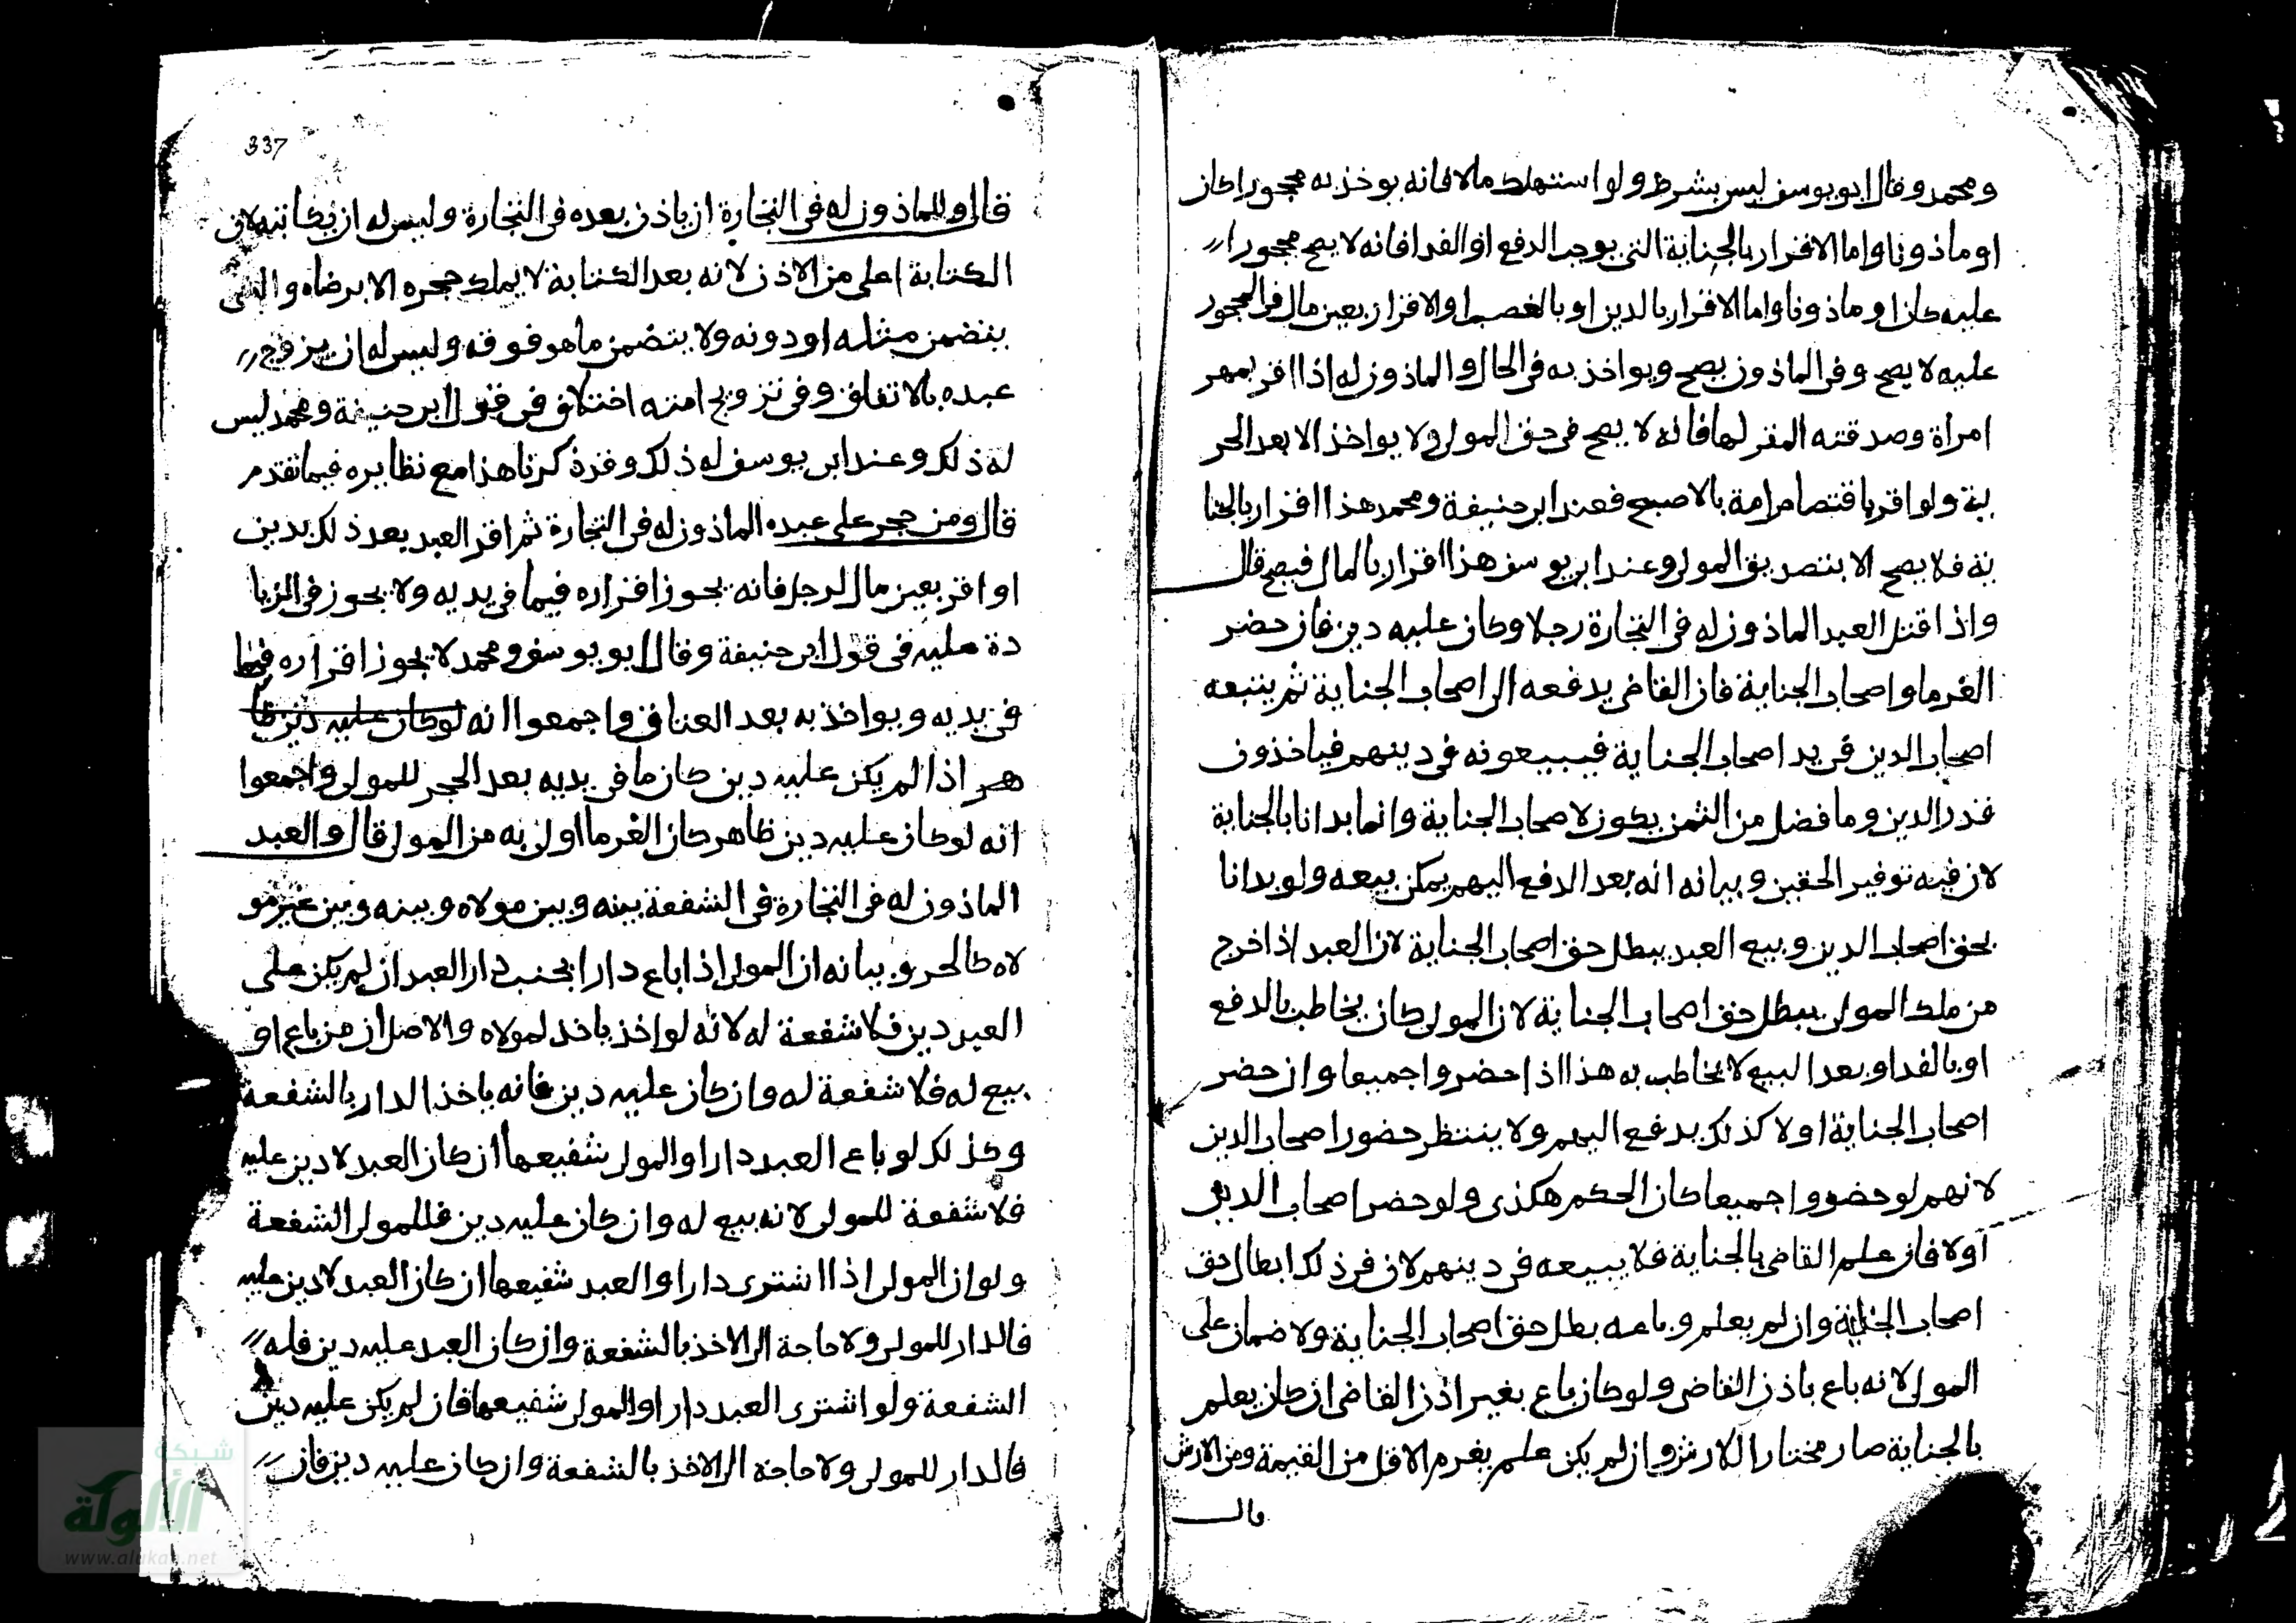 ومحمد وقال ابو يوسف ليس بشرط ولو استهلك مالا فانه يوخذ به محجورا كان
او ماذونا واما الاقرار بالجناية التي يوجب الدفع او الفدا فانه لا يصح محجورا
عليه كان او ماذونا واما الاقرار بالدين او بالغصب او الاقرار بعين مال في المحجور
عليه لا يصح وفي الماذون يصح ويواخذ به في الحال والماذون له اذا اقر بمهر
امراة وصدقته المقر لها فانه لا يصح في حق المولى ولا يواخذ الا بعد الحر
ية ولو اقر باقتضاض امة بالاصبع فعند ابي حنيفة ومحمد هذا اقرار بالجنا
ية فلا يصح الا بتصديق المولى وعند ابي يوسف هذا اقرار بالمال فيصح قال
واذا قتل العبد الماذون له في التجارة رجلا وكان عليه دين فان حضر
الغرما واصحاب الجناية فان القاضي يدفعه الى اصحاب الجناية ثم يتبعه
اصحاب الدين في يد اصحاب الجناية فيبيعونه في دينهم فياخذون
قدر الدين وما فضل من الثمن يكون لاصحاب الجناية وانما بدانا بالجناية
لان فيه توفير الحقين وبيانه انه بعد الدفع اليهم يمكن بيعه ولو بدانا
بحق اصحاب الدين وبيع العبد يبطل حق اصحاب الجناية لان العبد اذا خرج
من ملك المولى يبطل حق اصحاب الجناية لان المولى كان يخاطب بالدفع
او بالفدا وبعد البيع لا يخاطب به هذا اذا حضروا جميعا وان حضر
اصحاب الجناية اولا كذلك يدفع اليهم ولا ينتظر حضور اصحاب الدين
لانهم لو حضروا جميعا كان الحكم هكذى ولو حضر اصحاب الدين
اولا فان علم القاضي بالجناية فلا يبيعه في دينهم لان في ذلك ابطال حق
اصحاب الجناية وان لم يعلم وباعه بطل حق اصحاب الجناية ولا ضمان على
المولى لانه باع باذن القاضي ولو كان باع بغير اذن القاضي ان كان يعلم
بالجناية صار مختارا للارش وان لم يكن علم يغرم الاقل من القيمة ومن الارش
قال
337
قال وللماذون له في التجارة ان ياذن بعبده في التجارة وليس له ان يكاتبه لان
الكتابة اعلى من الاذن لانه بعد الكتابة لا يملك حجره الا برضاه والشي
يتضمن مثله او دونه ولا يتضمن ما هو فوقه وليس له ان يزوج
عبده بالاتفاق وفي تزويج امته اختلاف في قول ابي حنيفة ومحمد ليس
له ذلك وعند ابي يوسف له ذلك وقد ذكرنا هذا مع نظايره فيما تقدم
قال ومن حجر على عبده الماذون له في التجارة ثم اقر العبد بعد ذلك بدين
او اقر بعين مال لرجل فانه يجوز اقراره فيما في يديه ولا يجوز في الزيا
دة عليه في قول ابي حنيفة وقال ابو يوسف ومحمد لا يجوز اقراره فيما
في يديه ويواخذ به بعد العتاق واجمعوا انه لو كان عليه دين ظا
هر اذا لم يكن عليه دين كان ما في يديه بعد الحجر للمولى واجمعوا
انه لو كان عليه دين ظاهر كان الغرما اولى به من المولى قال والعبد
الماذون له في التجارة في الشفعة بينه وبين مولاه وبينه وبين غير مو
لاه كالحر وبيانه ان المولى اذا باع دارا بجنب دار العبد ان لم يكن على
العبد دين فلا شفعة له لانه لو اخذ ياخذ لمولاه والاصل ان من باع او
بيع له فلا شفعة له وان كان عليه دين فانه ياخذ الدار بالشفعة
وكذلك لو باع العبد دارا والمولى شفيعها ان كان العبد لا دين عليه
فلا شفعة للمولى لانه بيع له وان كان عليه دين فللمولى الشفعة
ولو ان المولى اذا اشترى دارا والعبد شفيعها ان كان العبد لا دين عليه
فالدار للمولى ولا حاجة الى الاخذ بالشفعة وان كان العبد عليه دين فله
الشفعة ولو اشترى العبد دارا والمولى شفيعها فان لم يكن عليه دين
فالدار للمولى ولا حاجة الى الاخذ بالشفعة وان كان عليه دين فان
شبكة
الألوكة
www.alukah.net